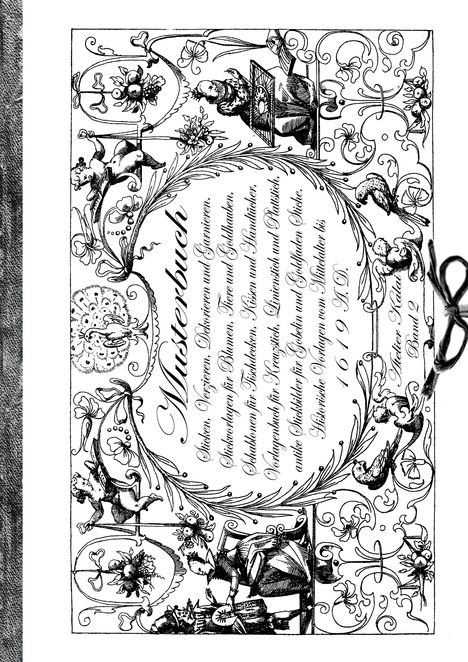 Musterbuch
Sticken, Verzieren, Dekorieren und Garnieren.
Stickvorlagen für Blumen, Tiere und Goldhauben,
Schablonen für Tischdecken, Kissen und Handtücher,
Vorlagenbuch für Kreuzstich, Leinenstich und Plattstich,
antike Stickbilder für Gobelin und Goldfaden Stiche.
Historische Vorlagen vom Mittelalter bis
1619 A.D.
Atelier
Band 2